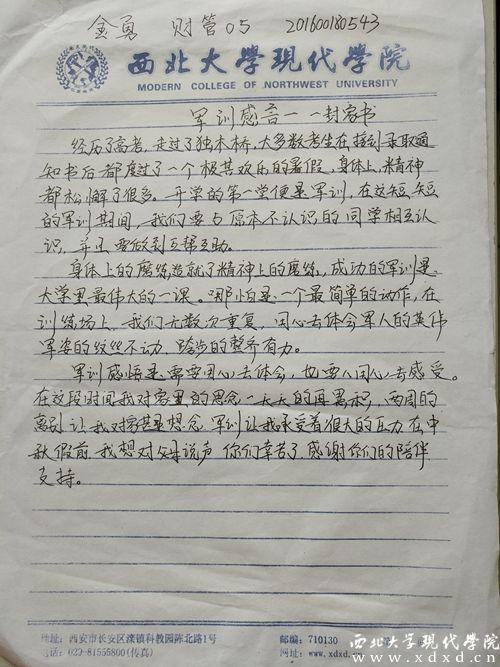 金勇 财管05 201600180543
西北大学现代学院
MODERN COLLEGE OF NORTHWEST UNIVERSITY
军训感言一一封家书
经历了高考,走过了独木桥,大多数考生在接到录取通
知书后都度过了一个极其欢乐的暑假,身体上,精神
都松懈了很多。开学的第一堂便是军训,在这短短
的军训期间,我们要与原本不认识的同学相互认
识,并且要做到互帮互助。
身体上的磨练造就了精神上的磨练,成功的军训是
大学里最伟大的一课。哪怕是一个最简单的动作,在
训练场上,我们无数次重复,用心去体会军人的英伟
军姿的纹丝不动,跨步的整齐有力。
军训感悟是需要用心去体会,也要用心去感受。
在这段时间我对家里的思念一天天的再累积,两周的
离别让我对家甚是想念,军训让我承受着很大的压力,在中
秋假前,我想对父母说声,你们辛苦了,感谢你们的陪伴
支持。
地址:西安市长安区滦镇科教园陈北路1号
邮编:710130
电话:029-81555800(传真)
网址:www.xdxd.
西北大学现代学院
www.xdxd.cn